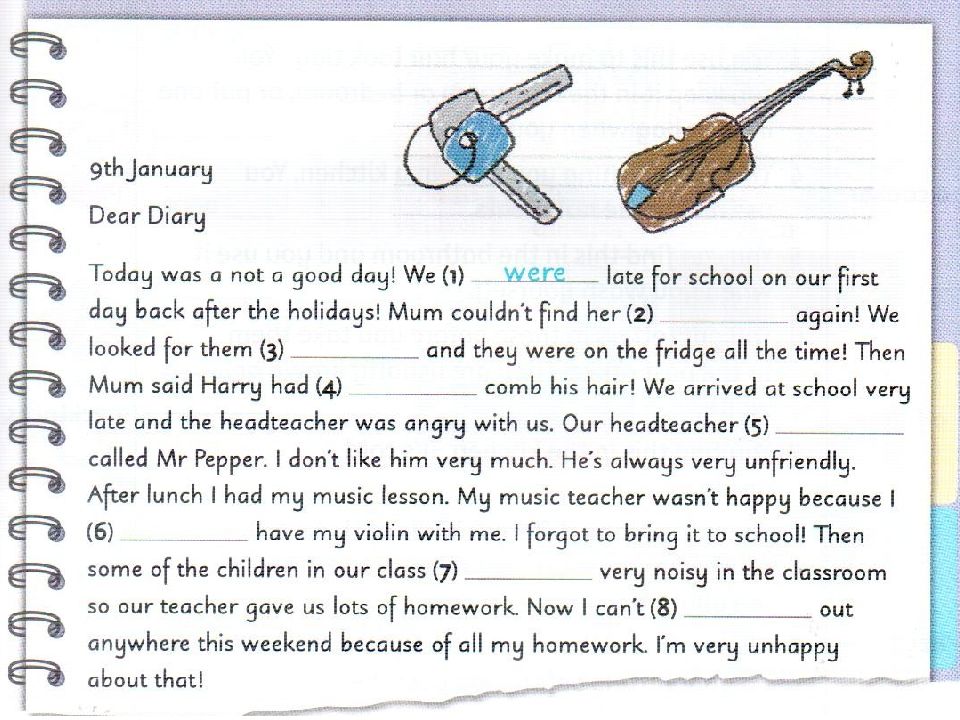 9th January
Dear Diary
Today was a not a good day! We (1) were late for school on our first
day back after the holidays! Mum couldn't find her (2) ____________ again! We
looked for them (3) ____________ and they were on the fridge all the time! Then
Mum said Harry had (4) ____________ comb his hair! We arrived at school very
late and the headteacher was angry with us. Our headteacher (5) ____________
called Mr Pepper. I don't like him very much. He's always very unfriendly.
After lunch I had my music lesson. My music teacher wasn't happy because I
(6) ____________ have my violin with me. I forgot to bring it to school! Then
some of the children in our class (7) ____________ very noisy in the classroom
so our teacher gave us lots of homework. Now I can't (8) ____________ out
anywhere this weekend because of all my homework. I'm very unhappy
about that!